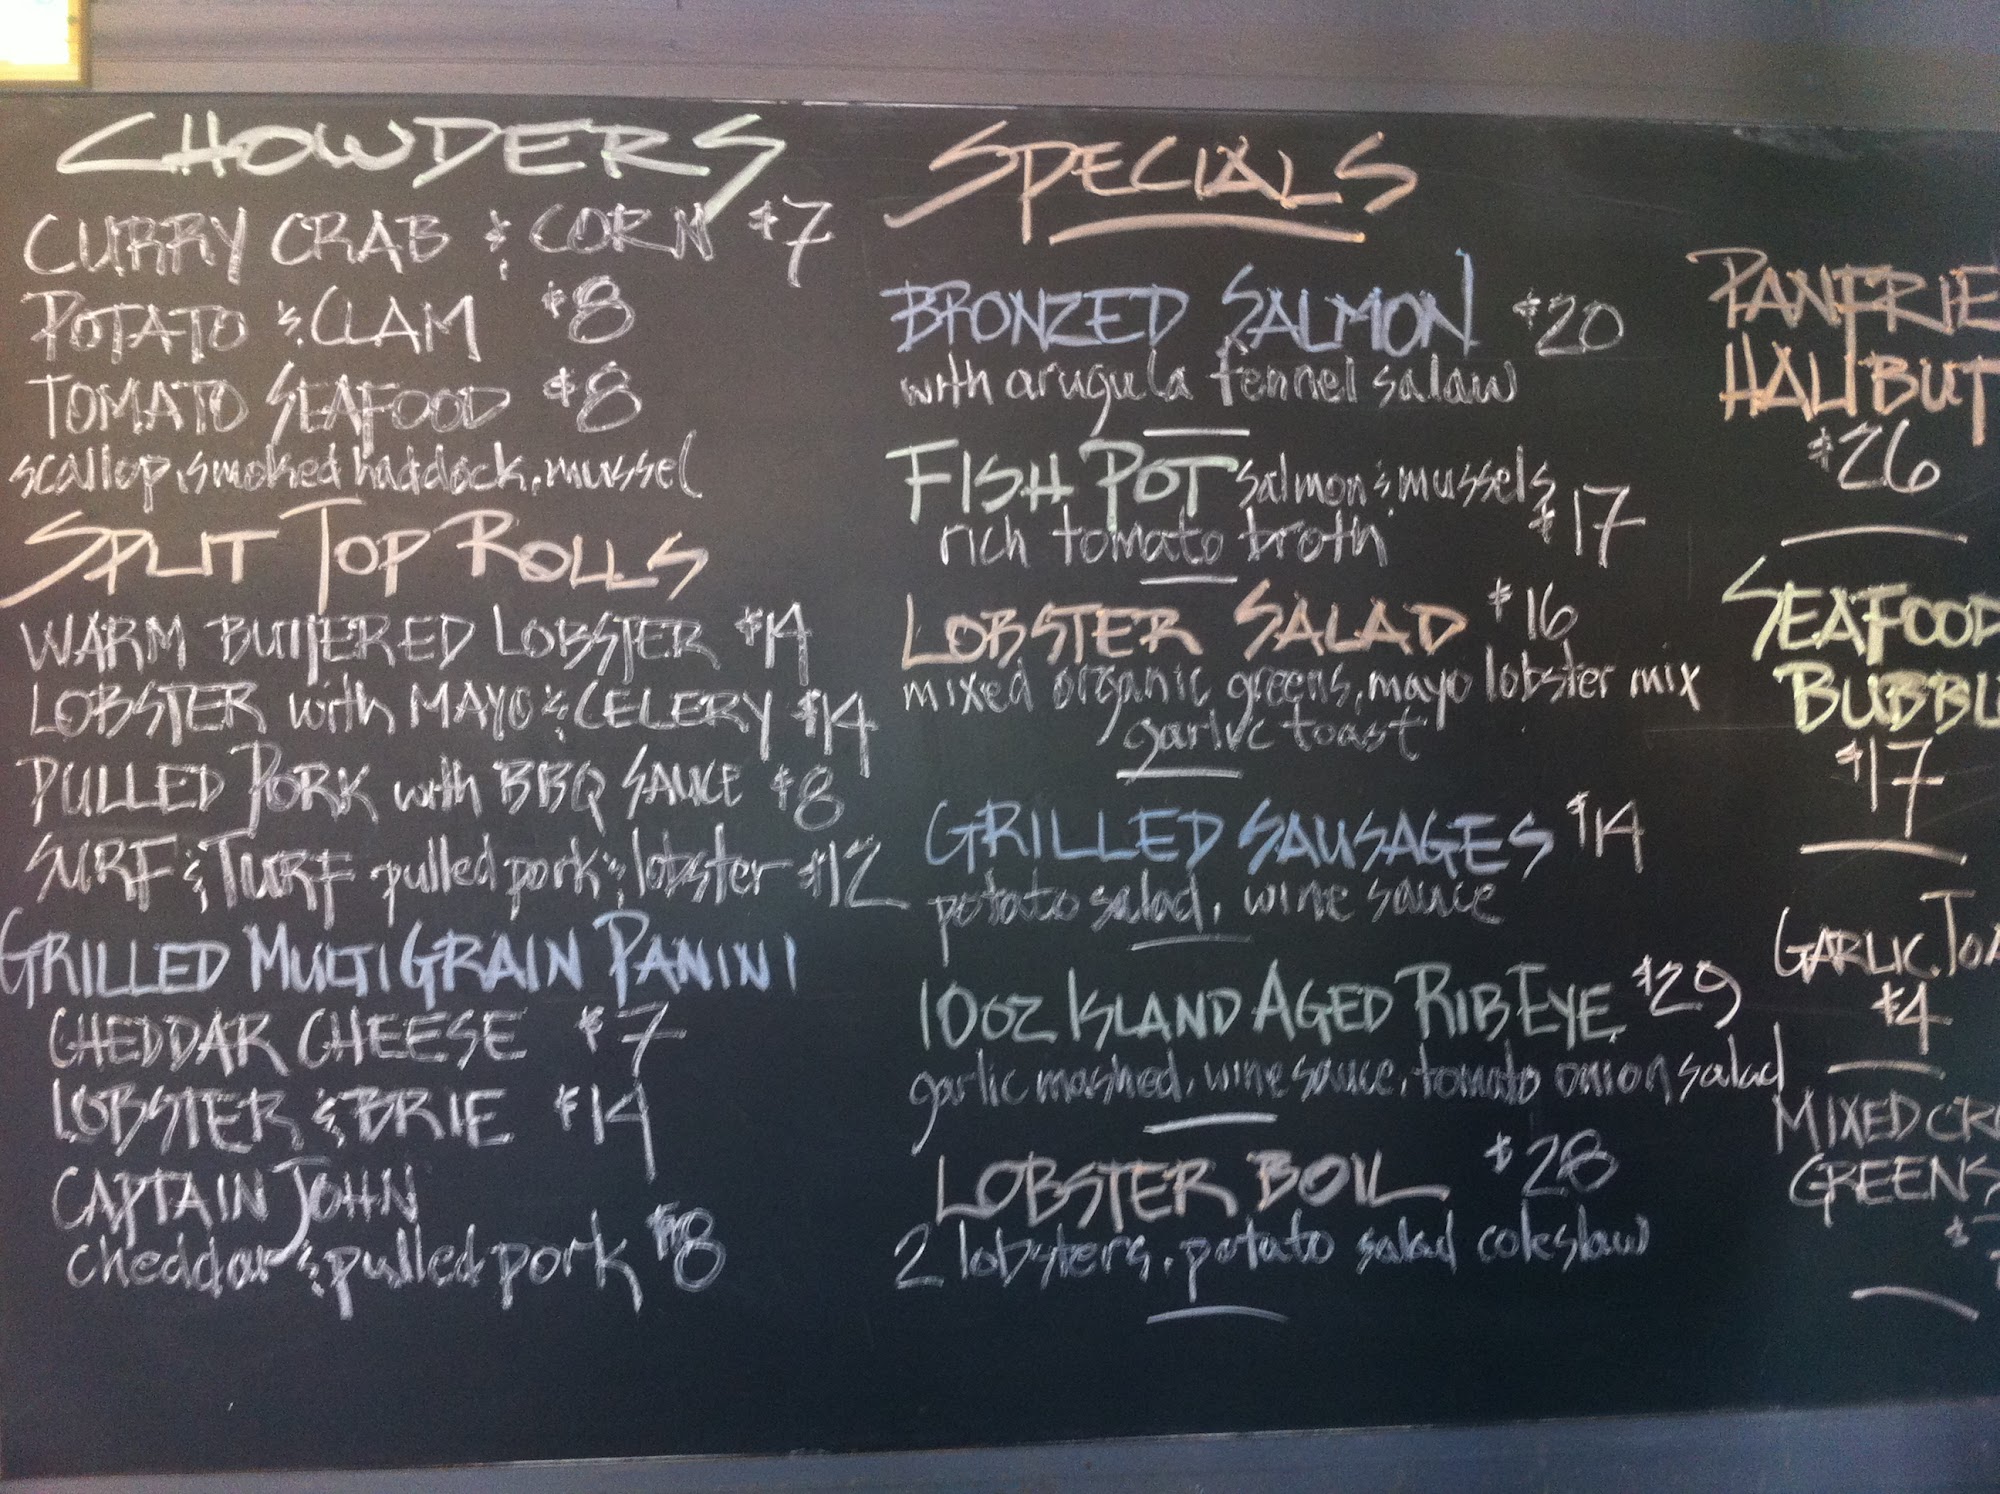 CHOWDERS
CURRY CRAB & CORN $7
POTATO & CLAM $8
TOMATO SEAFOOD $8
scallop, smoked haddock, mussel
SPLIT TOP ROLLS
WARM BUTTERED LOBSTER $14
LOBSTER with MAYO & CELERY $14
PULLED PORK with BBQ SAUCE $8
SURF & TURF pulled pork & lobster $12
GRILLED MULTIGRAIN PANINI
CHEDDAR CHEESE $7
LOBSTER & BRIE $14
CAPTAIN JOHN
cheddar & pulled pork $8
SPECIALS
BRONZED SALMON $20
with arugula fennel salaw
FISH POT salmon & mussels
rich tomato broth $17
LOBSTER SALAD $16
mixed organic greens, mayo lobster mix
garlic toast
GRILLED SAUSAGES $14
potato salad, wine sauce
10oz ISLAND AGED RIB EYE $29
garlic mashed, wine sauce, tomato onion salad
LOBSTER BOIL $28
2 lobsters, potato salad coleslaw
PANFRIE
HALIBUT
$26
SEAFOOD
BUBBL
$17
GARLIC TOA
$4
MIXED
GREENS
$